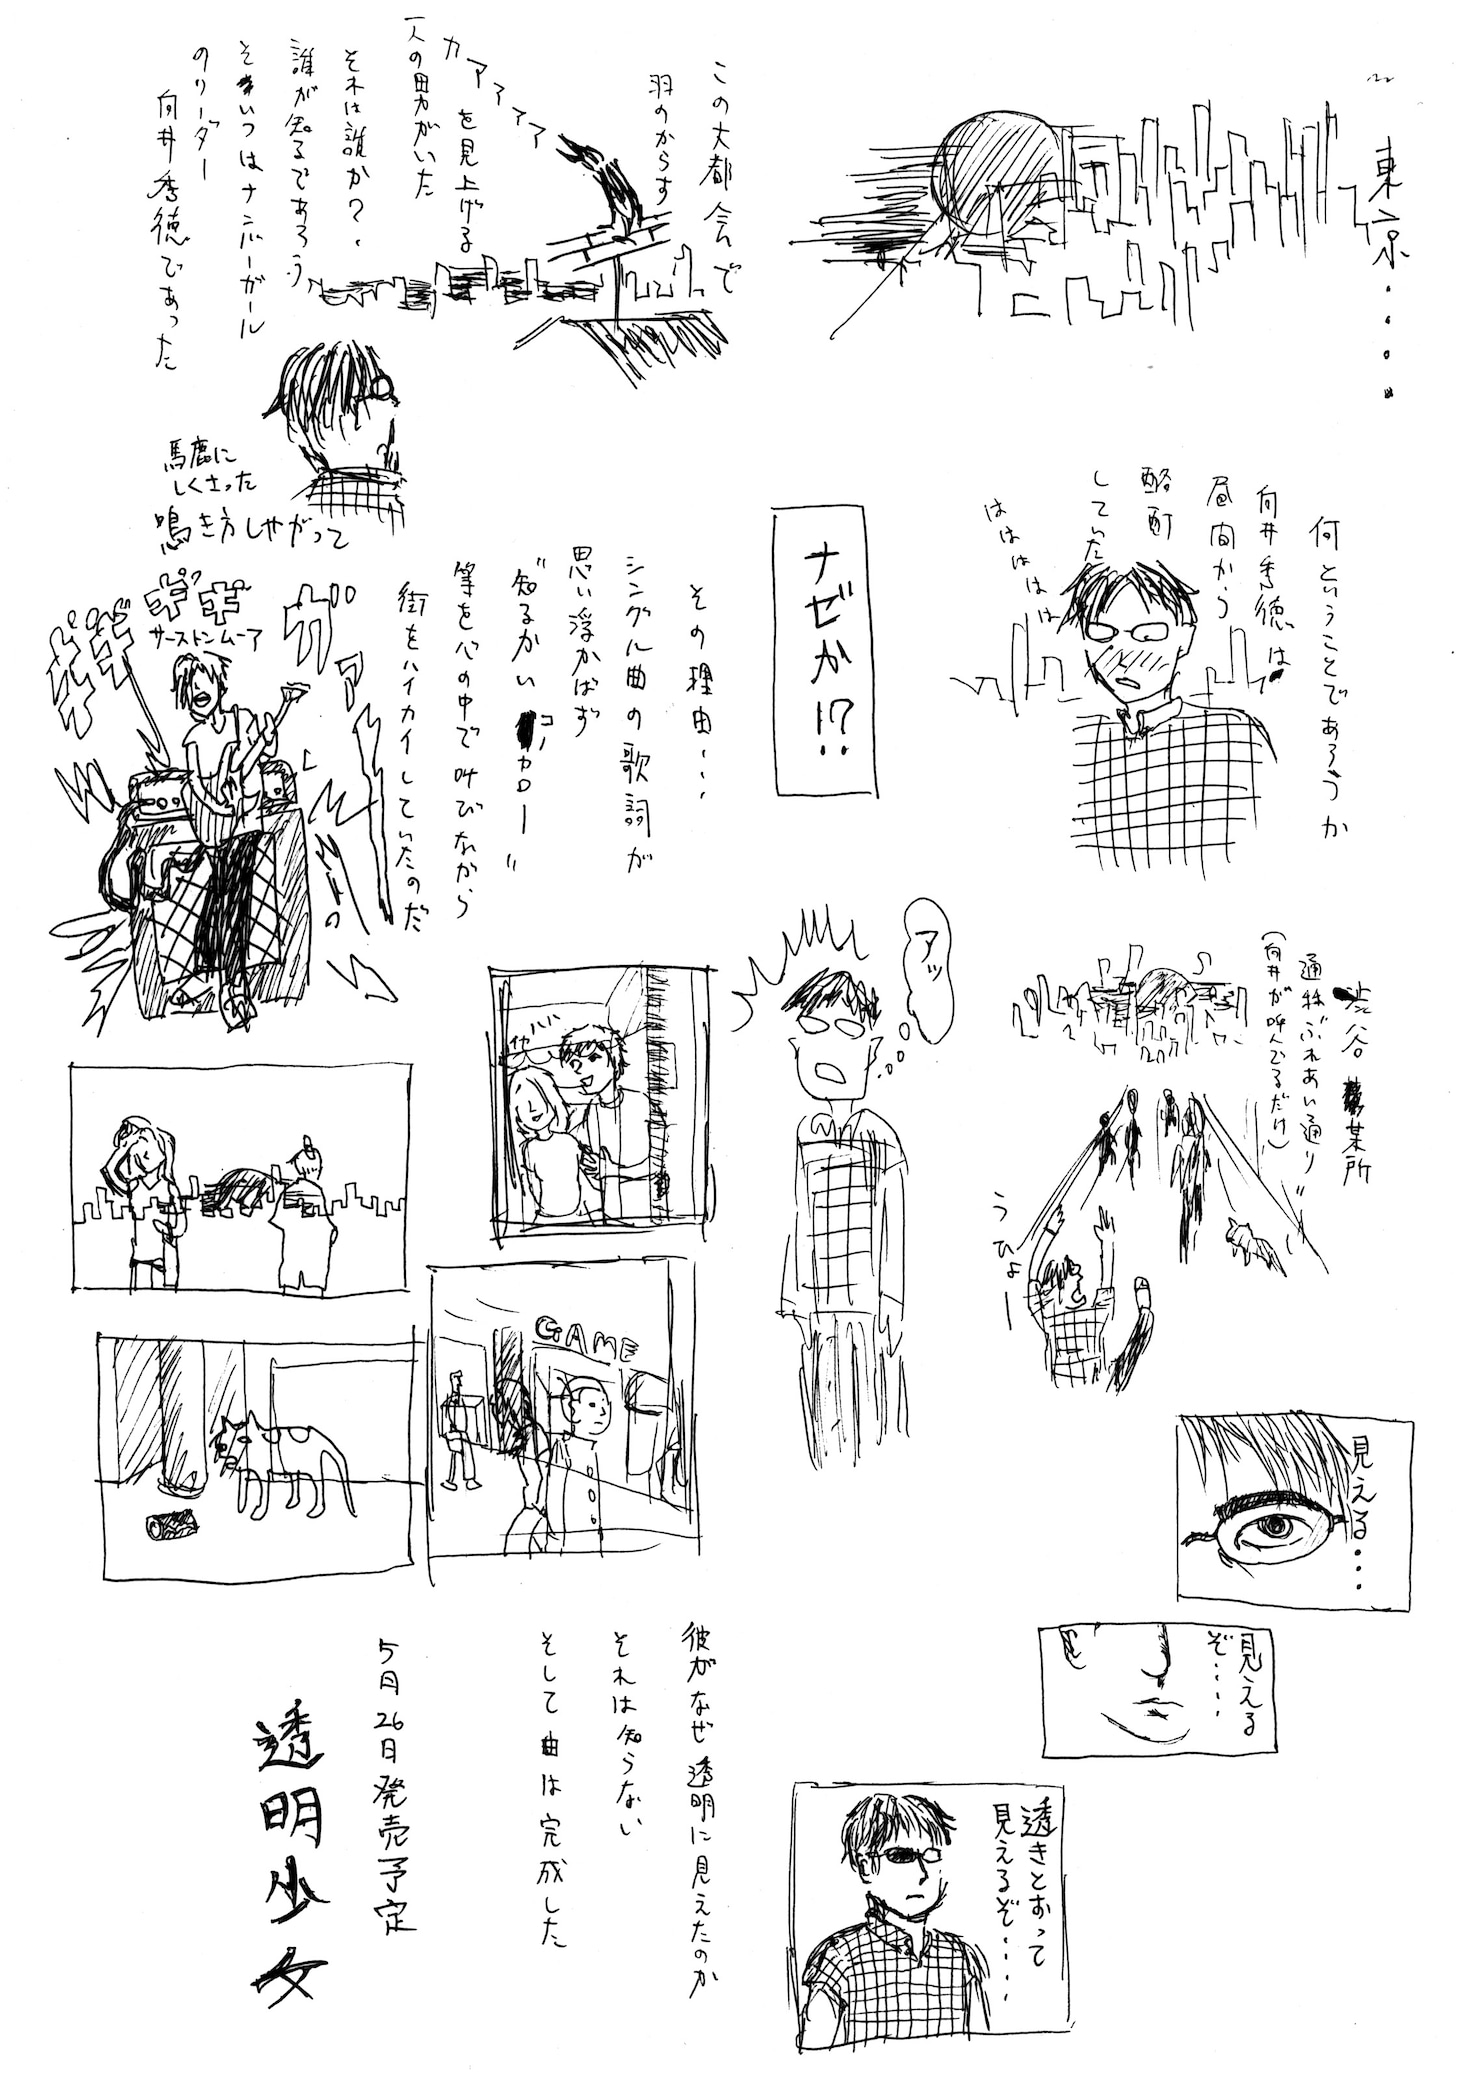 東京・・・・・
この大都会で
一羽のからす
カァァァァ
を見上げる
一人の男がいた
それは誰か?・
誰が知るであろう
そいつはナンバーガール
のリーダー
向井秀徳であった
馬鹿に
しくさった
鳴き方しやがって
何ということであろうか
向井秀徳は
昼間から
酩酊
していた
はははははは
ナゼか!?
その理由・・・
シングル曲の歌詞が
思い浮かばず
〝知るかい コノカロー〟
等を心の中で叫びながら
街をハイカイしていたのだ
ギギ
ギギ
ガァ
サーストンムーア
渋谷 某所
通称〝ふれあい通り〟
(向井が呼んでるだけ)
うひょー
アッ
イヤ
ハハ
GAME
見える・・・
見える
ぞ・・・・
透きとおって
見えるぞ・・・・
彼がなぜ透明に見えたのか
それは知らない
そして曲は完成した
5月26日発売予定
透明少女